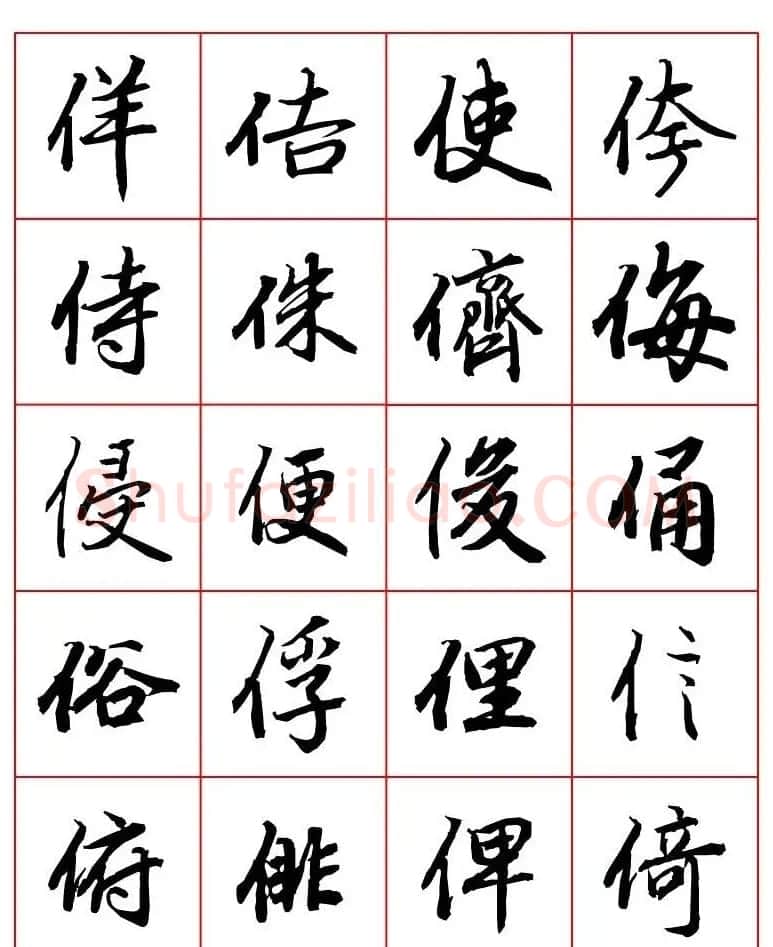 佯佶使侉
侍侏儕侮
優便俊俑
俗俘俚信
俯俳俾倚
Shufaziliao.COM